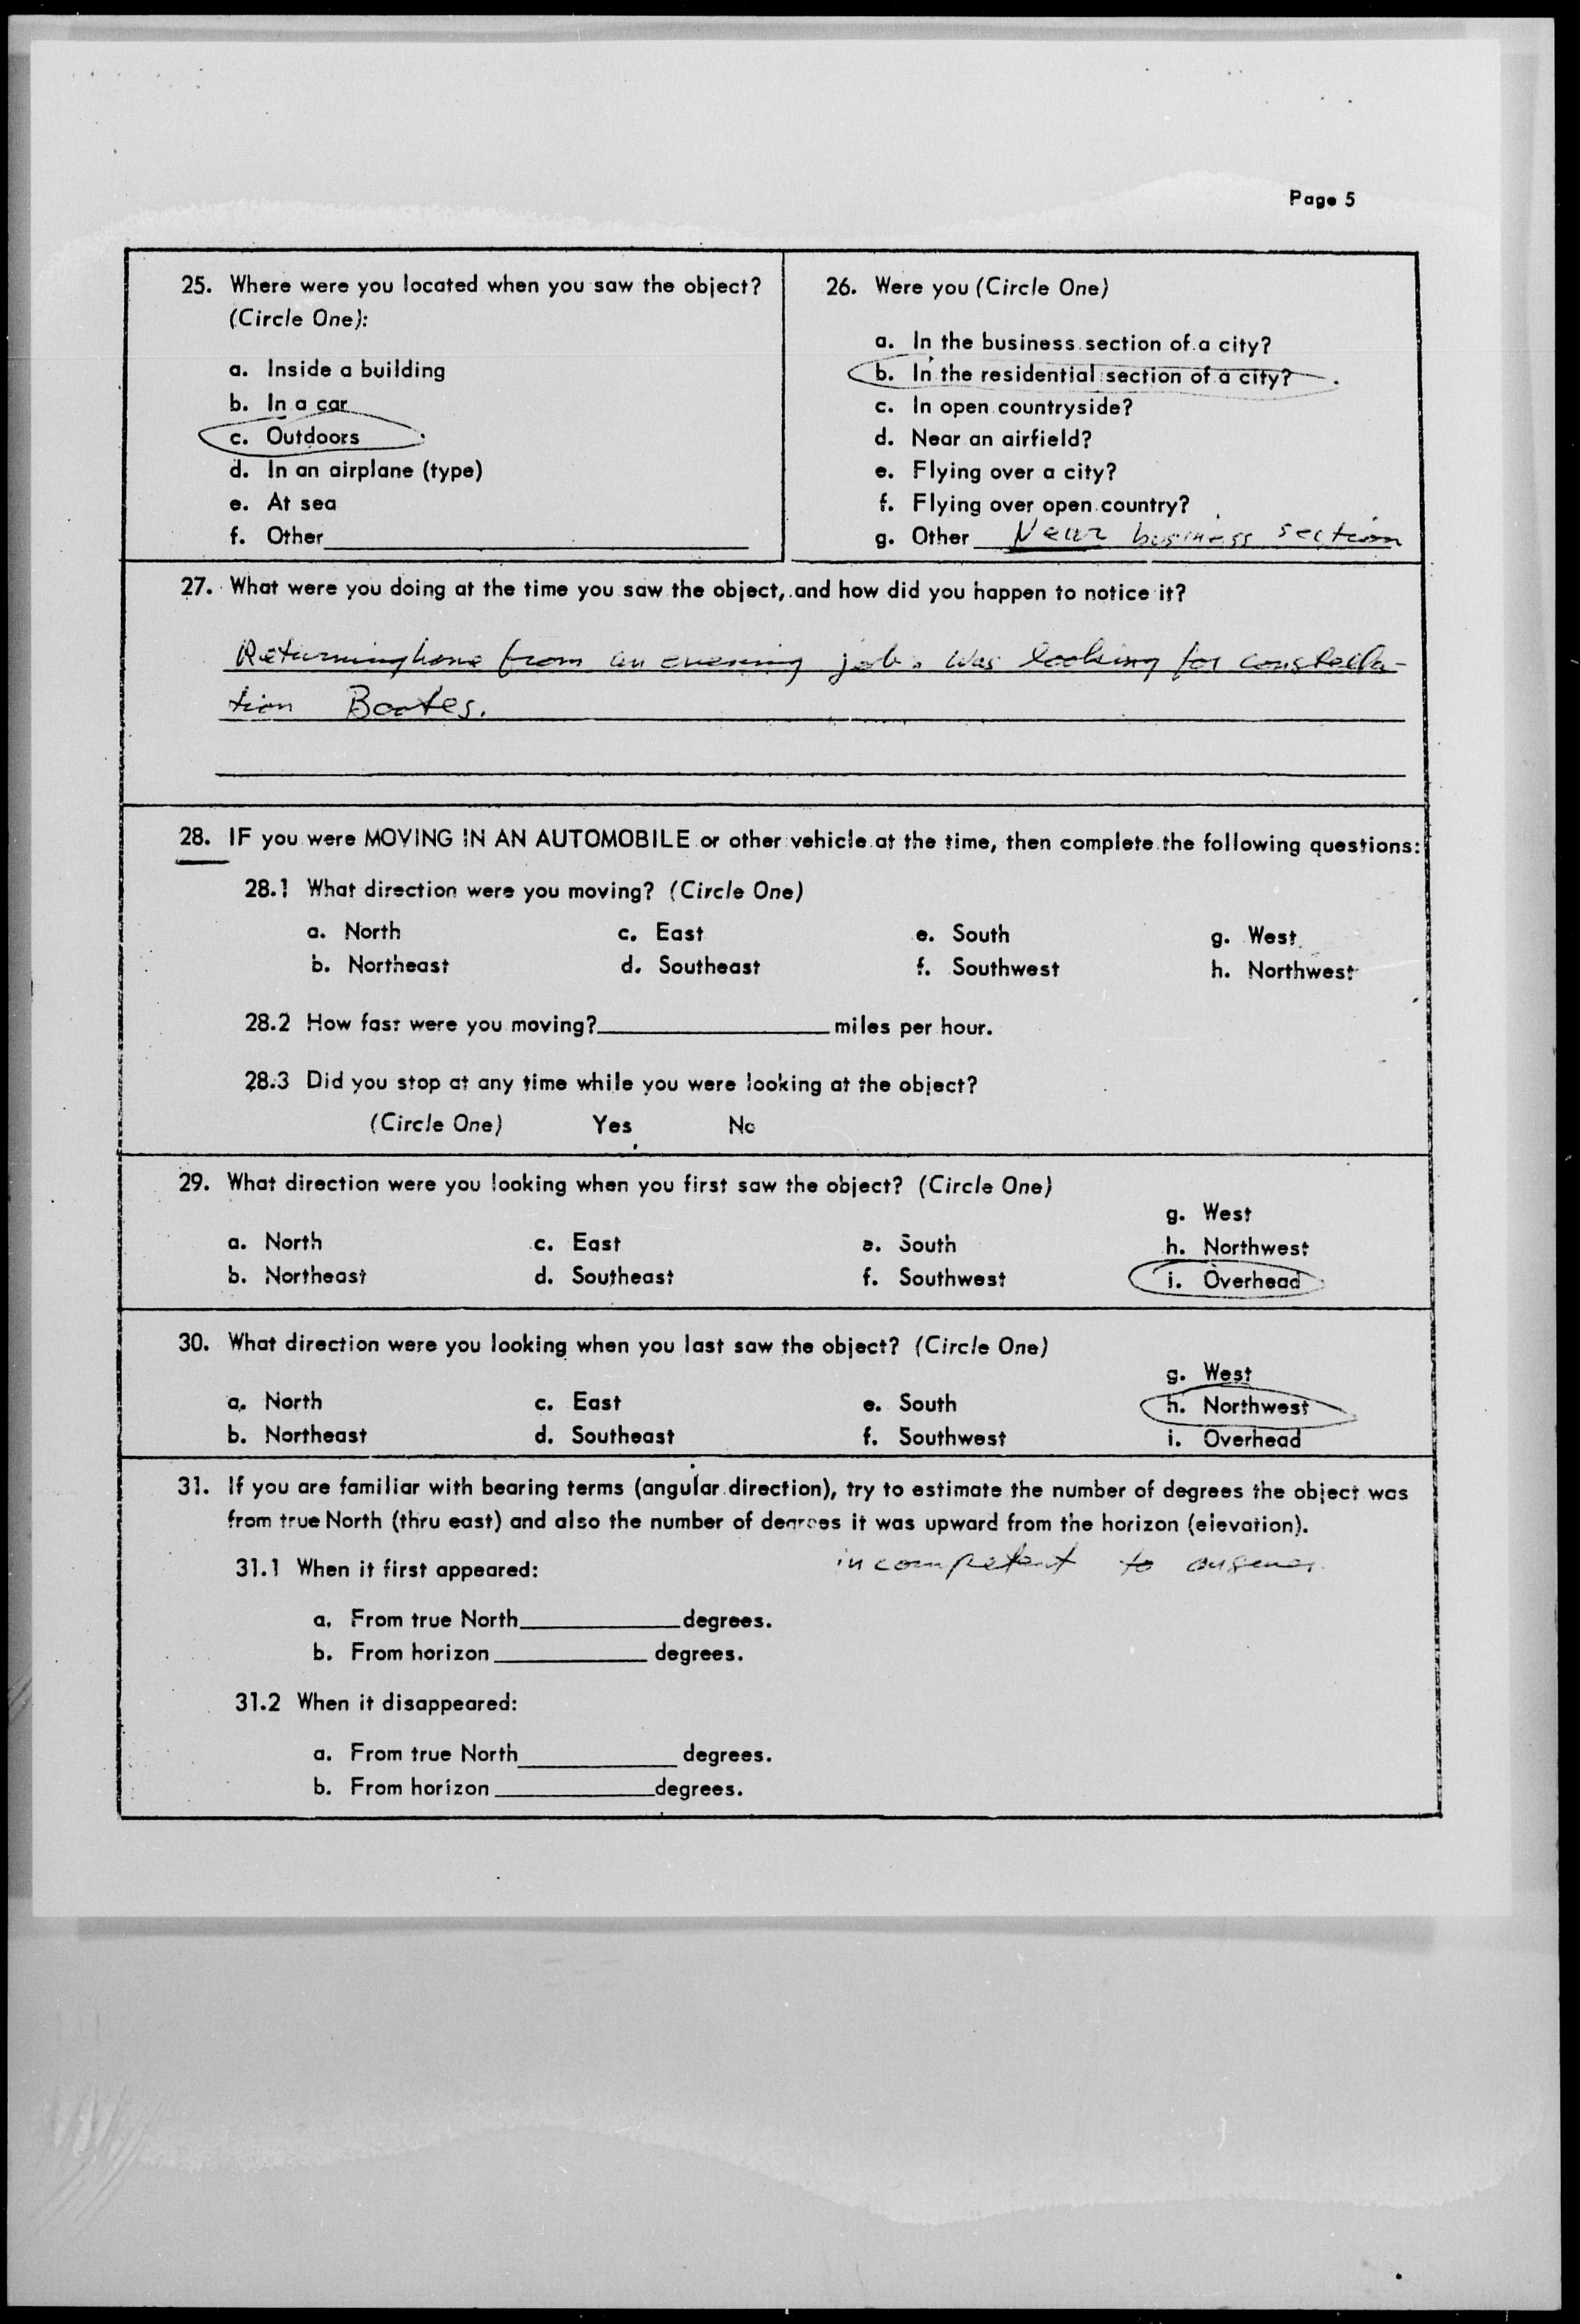 Page 5
25. Where were you located when you saw the object?
(Circle One):
a. Inside a building
b. In a car
c. Outdoors
d. In an airplane (type)
e. At sea
f. Other
26. Were you (Circle One)
a. In the business section of a city?
b. In the residential section of a city?
c. In open countryside?
d. Near an airfield?
e. Flying over a city?
f. Flying over open country?
g. Other Near business section
27. What were you doing at the time you saw the object, and how did you happen to notice it?
Returning home from an evening job. Was looking for constella-
tion Bootes.
28. IF you were MOVING IN AN AUTOMOBILE or other vehicle at the time, then complete the following questions:
28.1 What direction were you moving? (Circle One)
a. North c. East e. South g. West
b. Northeast d. Southeast f. Southwest h. Northwest
28.2 How fast were you moving? miles per hour.
28.3 Did you stop at any time while you were looking at the object?
(Circle One) Yes No
29. What direction were you looking when you first saw the object? (Circle One)
g. West
a. North c. East e. South h. Northwest
b. Northeast d. Southeast f. Southwest i. Overhead
30. What direction were you looking when you last saw the object? (Circle One)
g. West
a. North c. East e. South h. Northwest
b. Northeast d. Southeast f. Southwest i. Overhead
31. If you are familiar with bearing terms (angular direction), try to estimate the number of degrees the object was
from true North (thru east) and also the number of degrees it was upward from the horizon (elevation).
31.1 When it first appeared: incompetent to answer
a. From true North degrees.
b. From horizon degrees.
31.2 When it disappeared:
a. From true North degrees.
b. From horizon degrees.